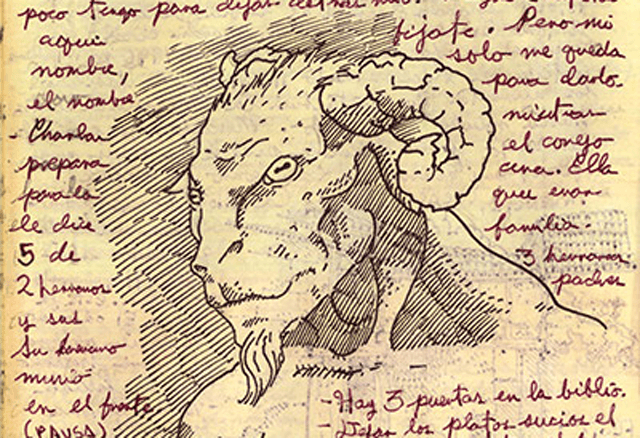 poco tengo para dejar
fijate. Pero mi
aqui
solo me queda
nombre,
para darlo.
el nombre
mientras
- Charlan
el conejo
prepara
cena. Ella
para la
que eran
le dice
familia.
5 de
3 hermanas
2 hermanos
padres
y sus
su hermano
murió
en el frente.
- Hay 3 puertas en la biblio.
(PAUSA)
- Dejar los platos sucios el